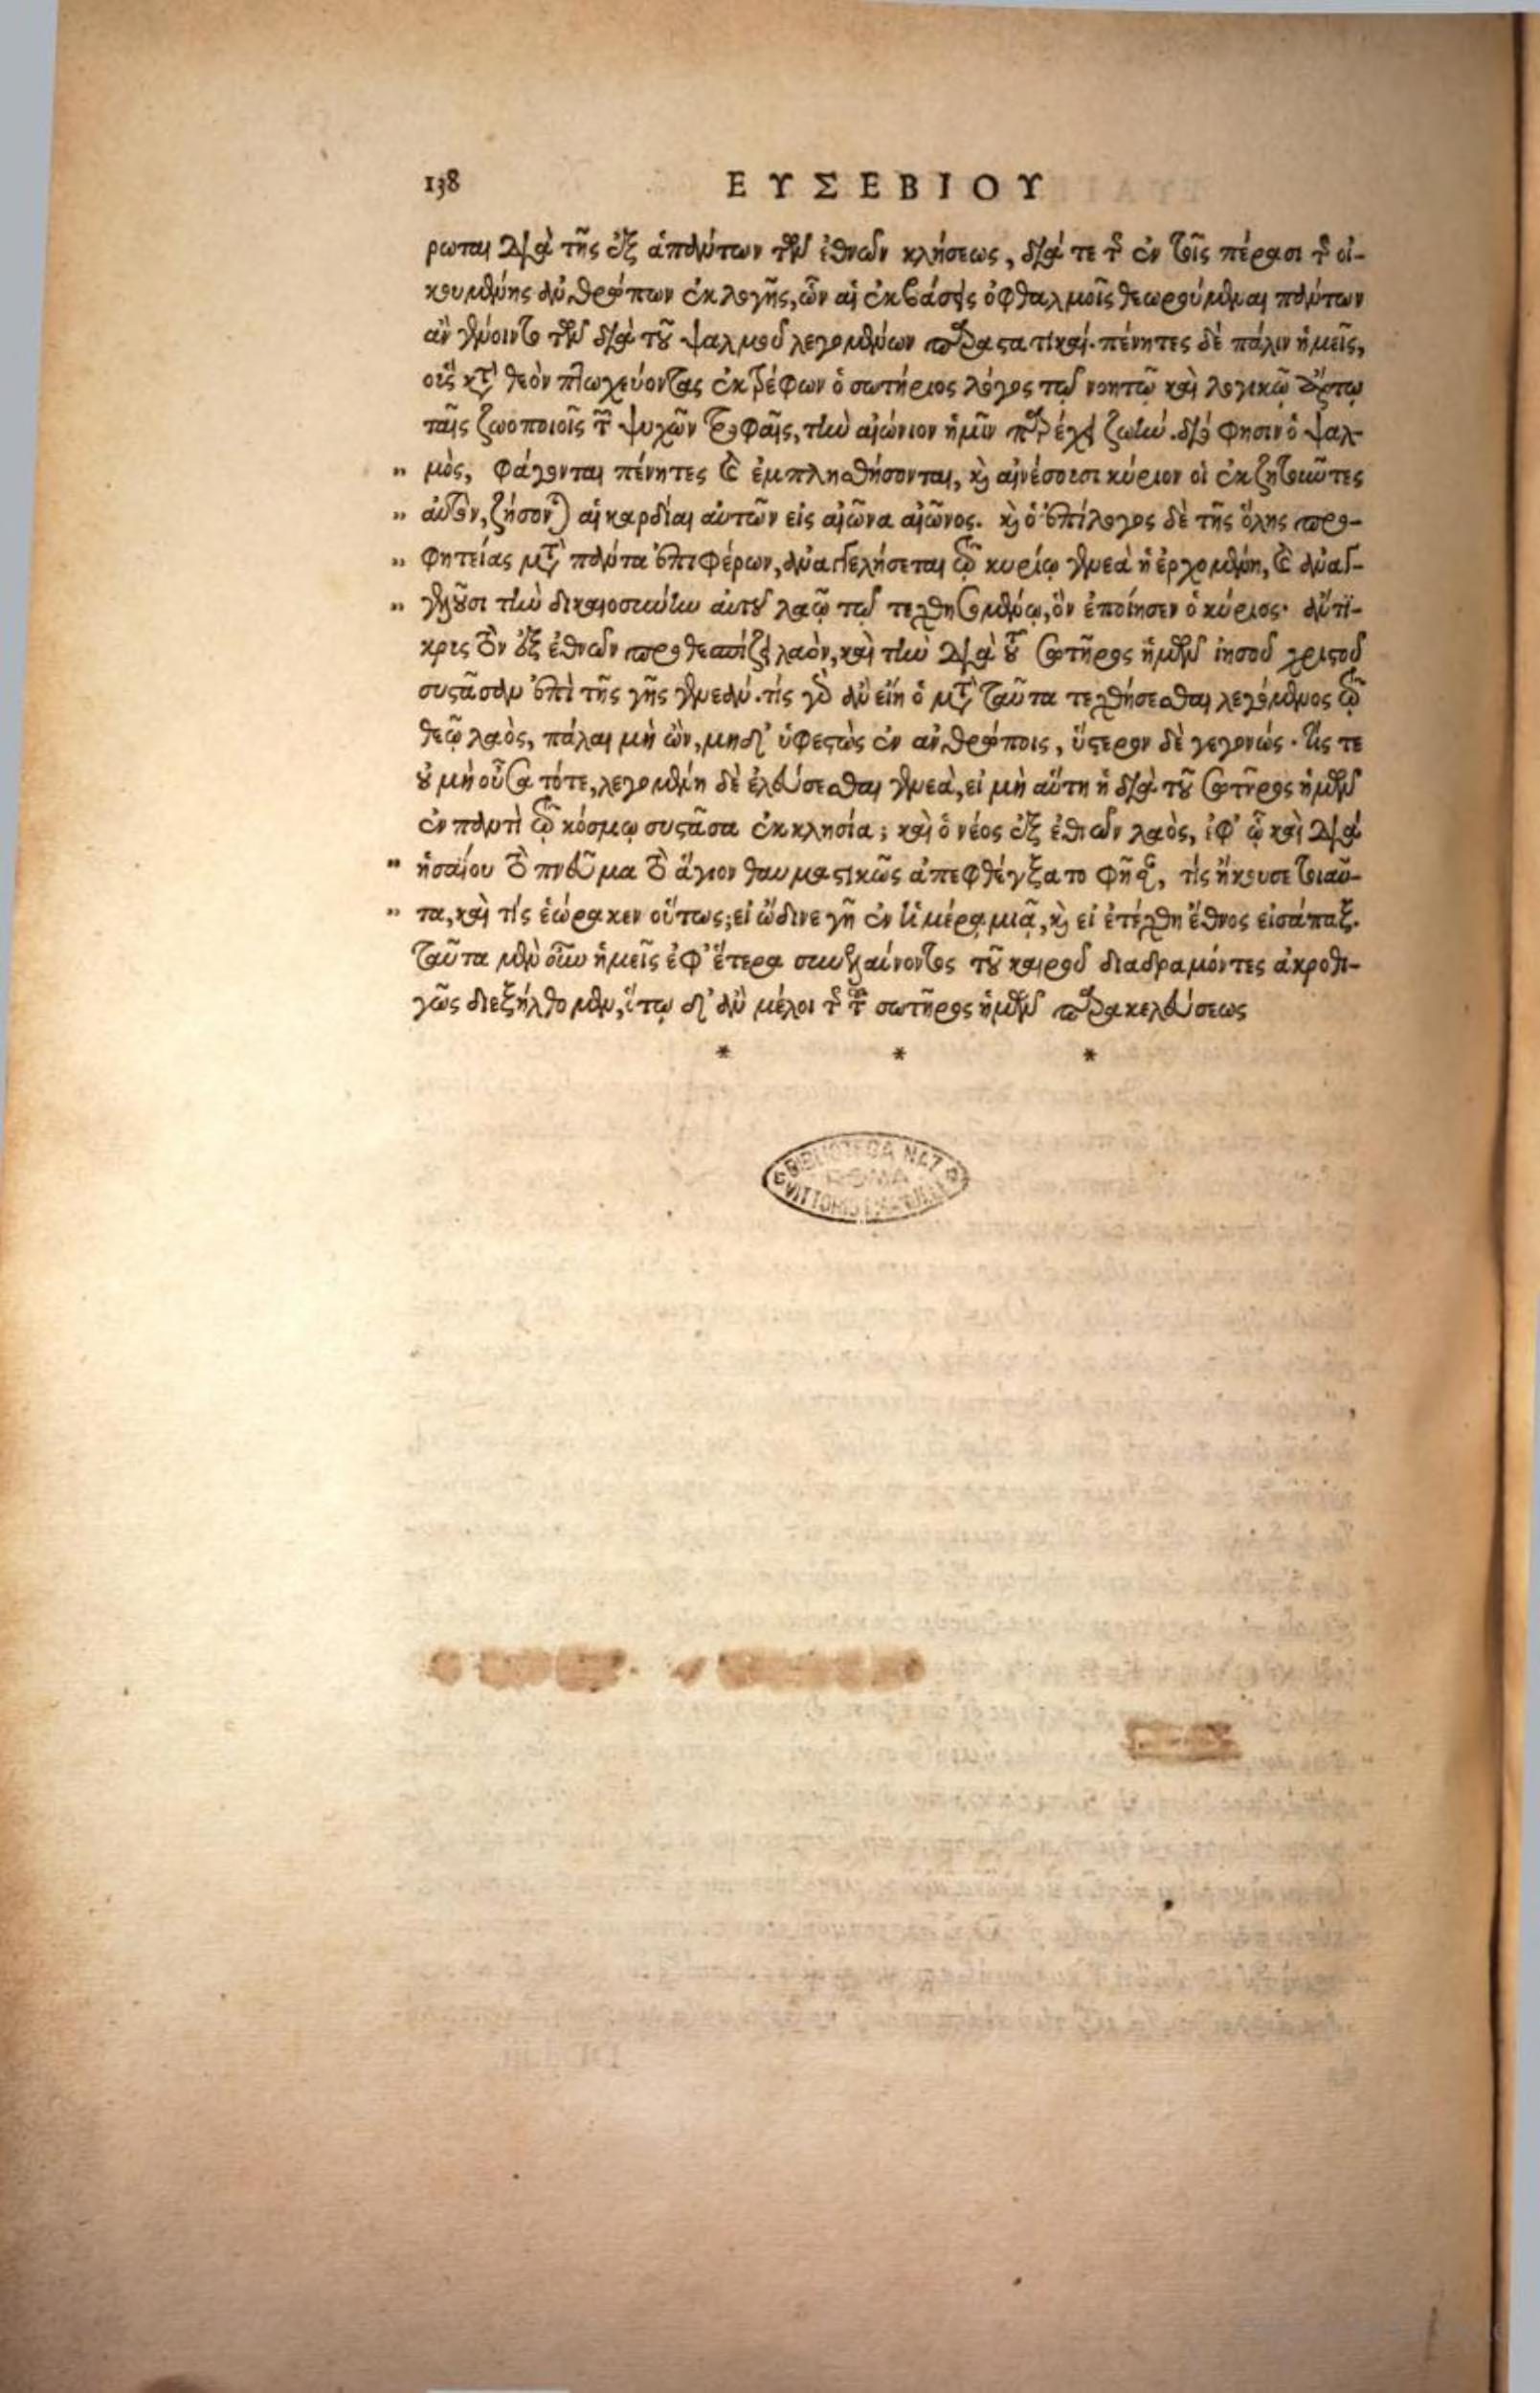 138 ΕΥΣΕΒΙΟΥ
ρωται διὰ τῆς ἐξ ἁπάντων τῶν ἐθνῶν κλήσεως, διά τε τῆς ἐν τοῖς πέρασι τῆς οἰ-
κουμένης ἀνθρώπων ἐκλογῆς, ὧν αἱ ἐκβάσεις ὀφθαλμοῖς θεωρούμεναι πάντων
ἂν γένοιντο τῶν διὰ τοῦ ψαλμοῦ λεγομένων παραστατικαί. πένητες δὲ πάλιν ἡμεῖς,
οἷς κατὰ θεὸν πτωχεύοντας ἐκτρέφων ὁ σωτήριος λόγος τῷ νοητῷ καὶ λογικῷ ἄρτῳ
ταῖς ζωοποιοῖς τῶν ψυχῶν τροφαῖς, τὴν αἰώνιον ἡμῖν παρέχει ζωήν. διό φησιν ὁ ψαλ-
" μὸς, φάγονται πένητες καὶ ἐμπλησθήσονται, καὶ αἰνέσουσι κύριον οἱ ἐκζητοῦντες
" αὐτὸν, ζήσονται αἱ καρδίαι αὐτῶν εἰς αἰῶνα αἰῶνος. καὶ ὁ ἐπίλογος δὲ τῆς ὅλης προ-
" φητείας μετὰ πάντα ἐπιφέρων, ἀναγγελήσεται τῷ κυρίῳ γενεὰ ἡ ἐρχομένη, καὶ ἀναγ-
" γελοῦσι τὴν δικαιοσύνην αὐτοῦ λαῷ τῷ τεχθησομένῳ, ὃν ἐποίησεν ὁ κύριος. ἄντι-
κρις τὸν ἐξ ἐθνῶν προθεσπίζει λαὸν, καὶ τὴν διὰ τοῦ σωτῆρος ἡμῶν ἰησοῦ χριστοῦ
συστᾶσαν ἐπὶ τῆς γῆς γενεάν. τίς γὰρ ἂν εἴη ὁ μετὰ ταῦτα τεχθήσεσθαι λεγόμενος τῷ
θεῷ λαὸς, πάλαι μὴ ὢν, μηδ' ὑφεστὼς ἐν ἀνθρώποις, ὕστερον δὲ γεγονώς. τίς τε
ἡ μὴ οὖσα τότε, λεγομένη δὲ ἐλεύσεσθαι γενεὰ, εἰ μὴ αὕτη ἡ διὰ τοῦ σωτῆρος ἡμῶν
ἐν παντὶ τῷ κόσμῳ συστᾶσα ἐκκλησία; καὶ ὁ νέος ἐξ ἐθνῶν λαὸς, ἐφ' ᾧ καὶ διὰ
" ἡσαΐου τὸ πνεῦμα τὸ ἅγιον θαυμαστικῶς ἀπεφθέγξατο φῆσαν, τίς ἤκουσε τοιαῦ-
" τα, καὶ τίς ἑώρακεν οὕτως; εἰ ὤδινε γῆ ἐν ἡμέρᾳ μιᾷ, καὶ εἰ ἐτέχθη ἔθνος εἰσάπαξ.
ταῦτα μὲν οὖν ἡμεῖς ἐφ' ἕτερα συνελαύνοντος τοῦ καιροῦ διαδραμόντες ἀκροθι-
γῶς διεξήλθομεν, ἴτω δ' ἂν μέλοι τῆς τοῦ σωτῆρος ἡμῶν παρακελεύσεως
* * *
BIBLIOTECA NAZ
ROMA
VITTORIO EMANUELE